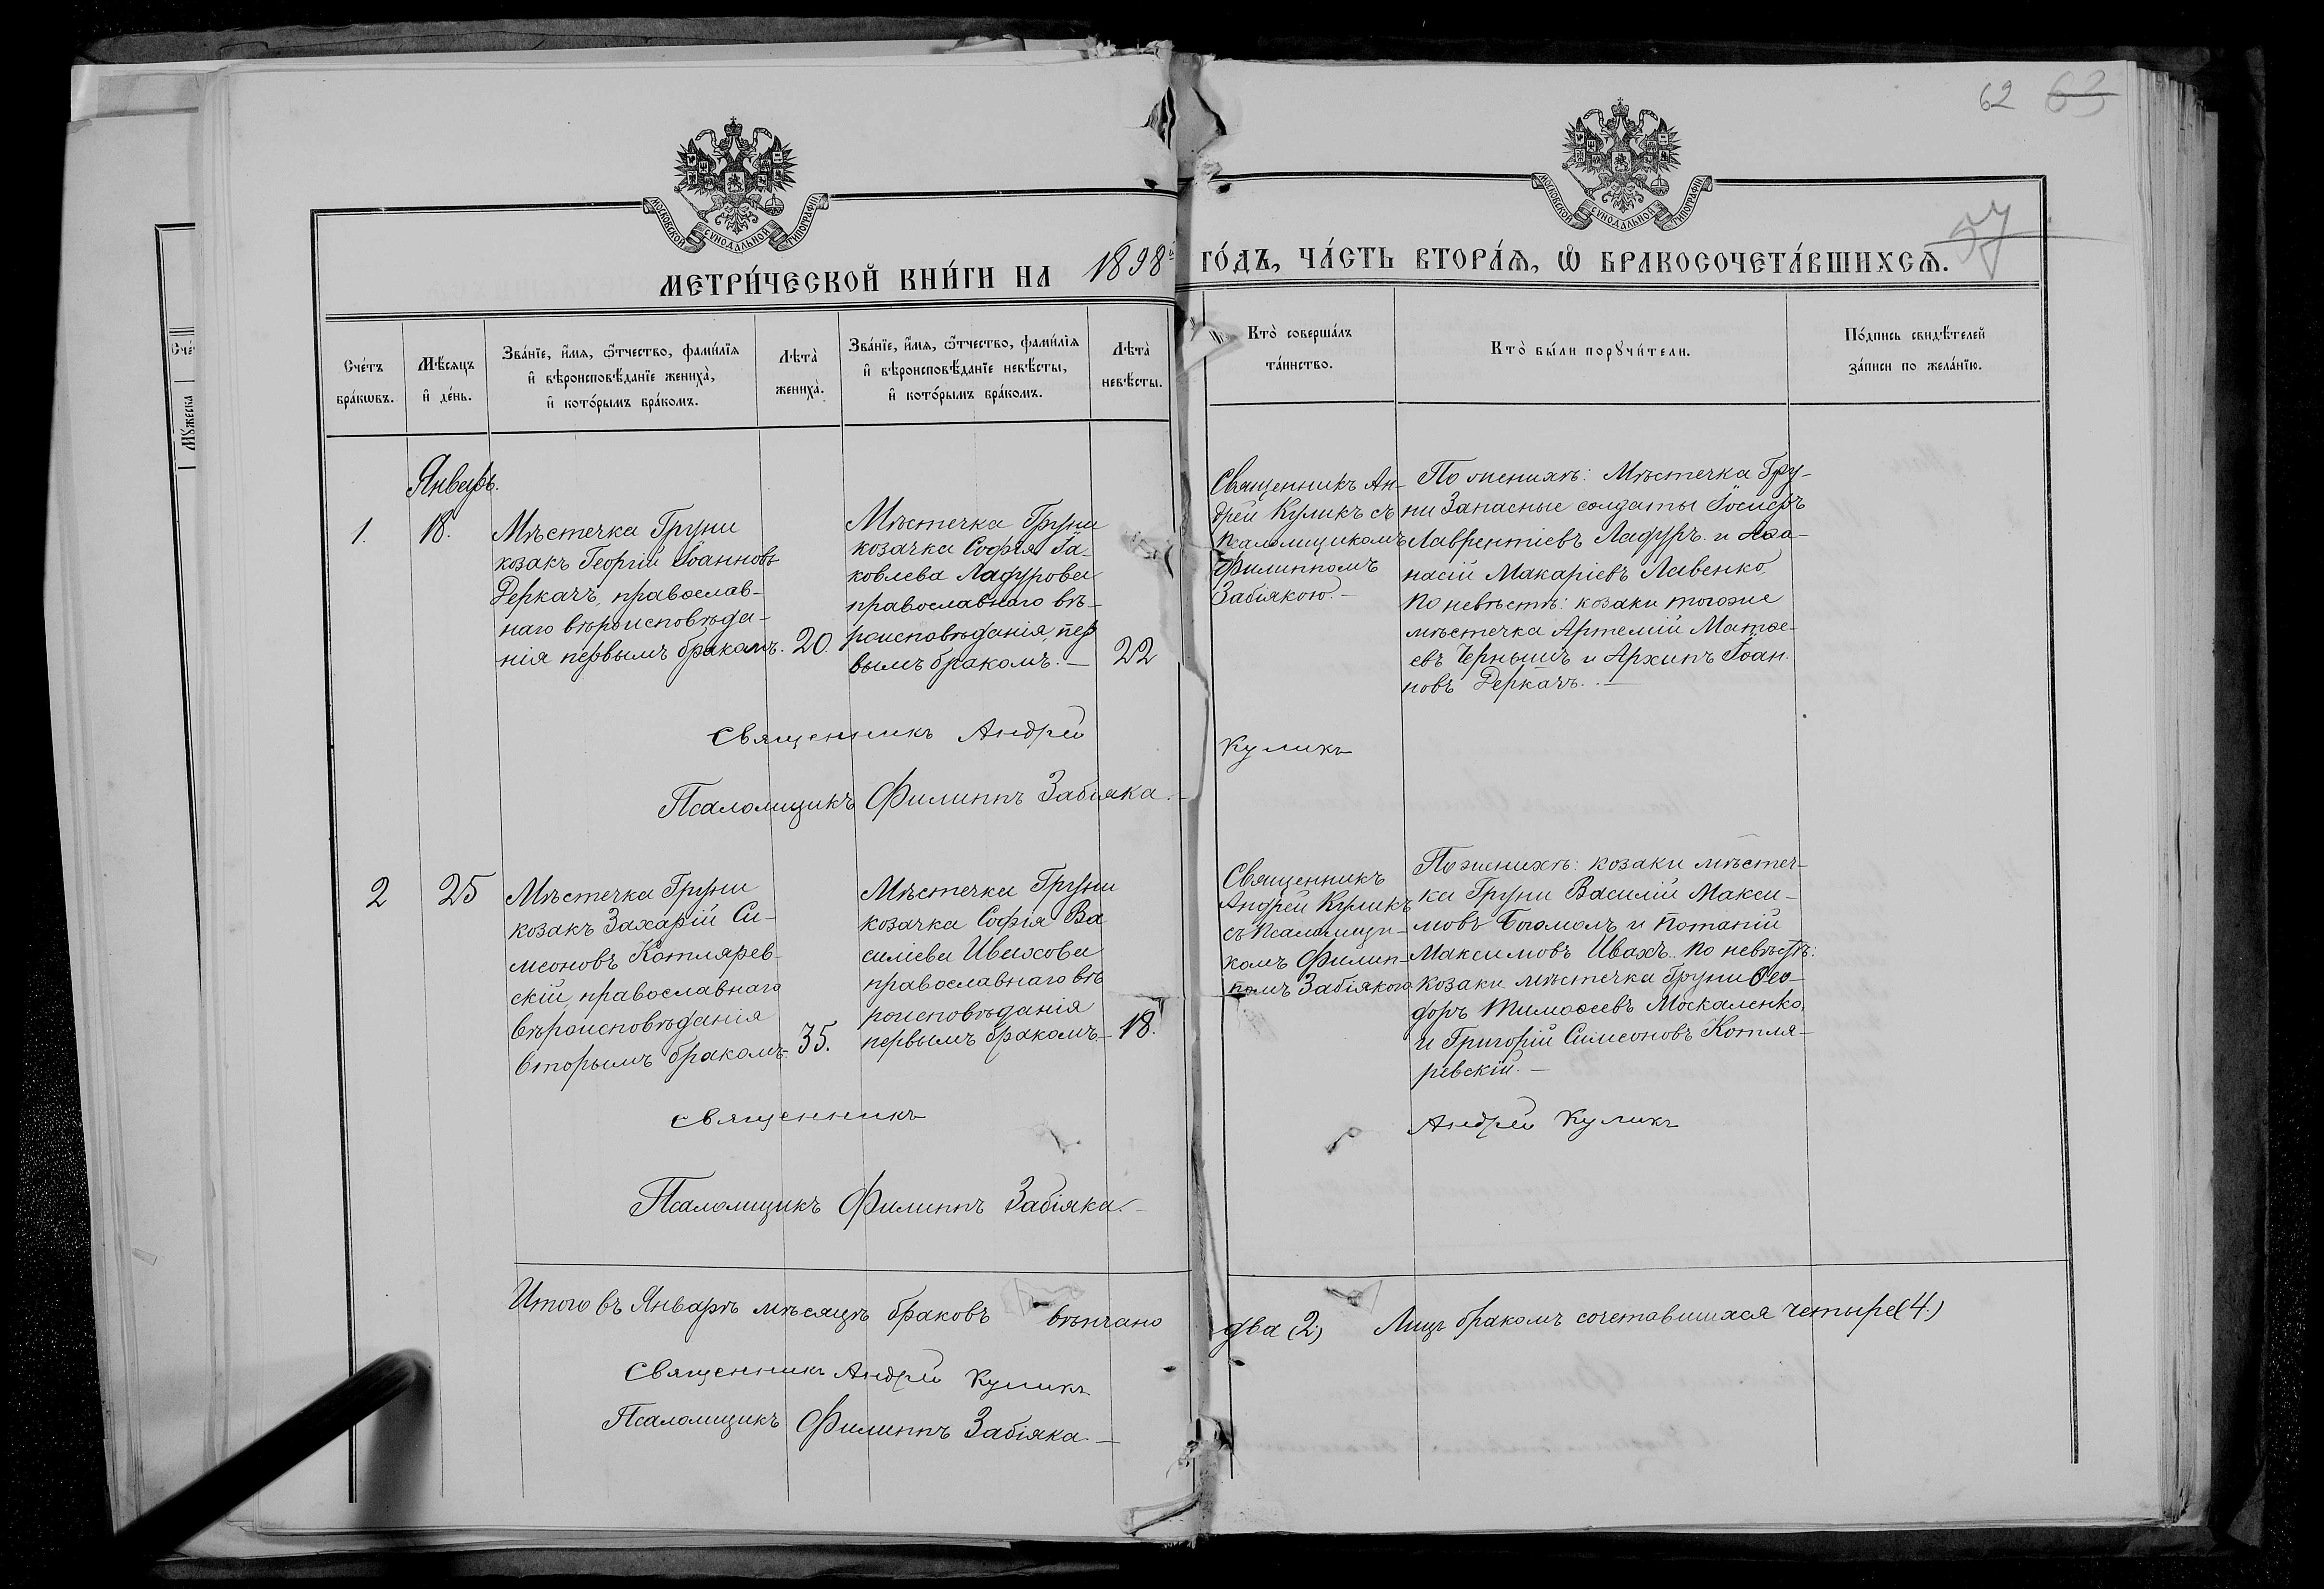 62 63
57
МОСКОВСКОЙ СѴНОДАЛЬНОЙ ТИПОГРАФІИ
МОСКОВСКОЙ СѴНОДАЛЬНОЙ ТИПОГРАФІИ
МЕТРИ́ЧЕСКОЙ КНИ́ГИ НА 1898й ГО́ДЪ, ЧА́СТЬ ВТОРА́Ѧ, Ѽ БРАКОСОЧЕТА́ВШИХСѦ.
Сче́тъ
бра́кѡвъ.
Мѣ́сяцъ
и҆ де́нь.
Зва́нїе, и҆́мѧ, ѻ҆́тчество, фами́лїѧ
и҆ вѣроисповѣ́данїе жениха̀,
и҆ кото́рымъ бра́комъ.
Лѣта̀
жениха̀.
Зва́нїе, и҆́мѧ, ѻ҆́тчество, фами́лїѧ
и҆ вѣроисповѣ́данїе невѣ́сты,
и҆ кото́рымъ бра́комъ.
Лѣта̀
невѣ́сты.
Кто̀ соверша́лъ
та́инство.
Кто̀ бы́ли порꙋчи́тели.
По́дпись свидѣ́телей
за́писи по жела́нїю.
Январь.
1.
18.
Мѣстечка Груни
козакъ Георгій Іоанновъ
Деркачъ, православ-
наго вѣроисповѣда-
нія первымъ бракомъ.
20.
Мѣстечка Груни
козачка Софія Іа-
ковлева Ладурова
православнаго вѣ-
роисповѣданія, пер
вымъ бракомъ. —
22
Священникъ Ан-
дрей Куликъ съ
псаломщикомъ
Филиппомъ
Забіякою. —
По женихѣ: Мѣстечка Гру-
ни Запасные солдаты Іосифъ
Лаврентіевъ Ладуръ и Аѳа-
насій Макаріевъ Лавенко,
По невѣстѣ: козаки тогоже
мѣстечка Артемій Матѳе-
евъ Чернышъ и Архипъ Іоан
новъ Деркачъ. —
Священникъ Андрей Куликъ
Псаломщикъ Филиппъ Забіяка. —
2
25
Мѣстечка Груни
козакъ Захарій Си-
меоновъ Котлярев-
скій, православнаго
вѣроисповѣданія
вторымъ бракомъ
35.
Мѣстечка Груни
козачка Софія Ва
силіева Ивахова
православнаго вѣ
роисповѣданія
первымъ бракомъ —
18.
Священникъ
Андрей Куликъ
съ Псаломщи-
комъ Филип-
помъ Забіякою
По женихѣ: козаки мѣстеч-
ка Груни Василій Макси-
мовъ Богомолъ и Потапій
Максимовъ Ивахъ. По невѣстѣ:
козаки мѣстечка Груни Ѳео-
доръ Тимоѳеевъ Москаленко,
и Григорій Симеоновъ Котля-
ревскій. —
Священникъ Андрей Куликъ
Псаломщикъ Филиппъ Забіяка. —
Итого въ Январѣ мѣсяцѣ браковъ вѣнчано два (2) Лицъ бракомъ сочетавшихся четыре (4.)
Священникъ Андрей Куликъ
Псаломщикъ Филиппъ Забіяка. —
Сче́
Мꙋжеска